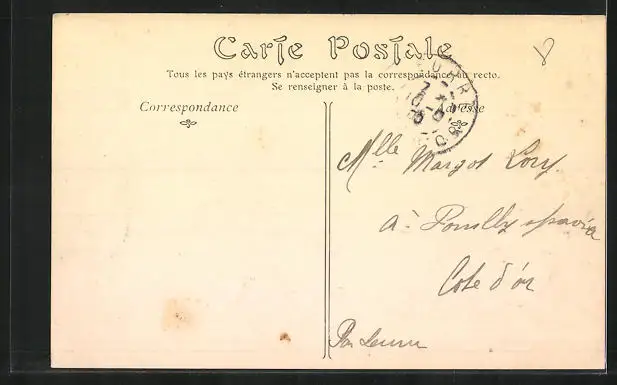 Carte Postale
Tous les pays étrangers n'acceptent pas la correspondance au recto.
Se renseigner à la poste.
Correspondance
Adresse
Mlle Margot Lory
à Pouilly
Cote d'or
Par